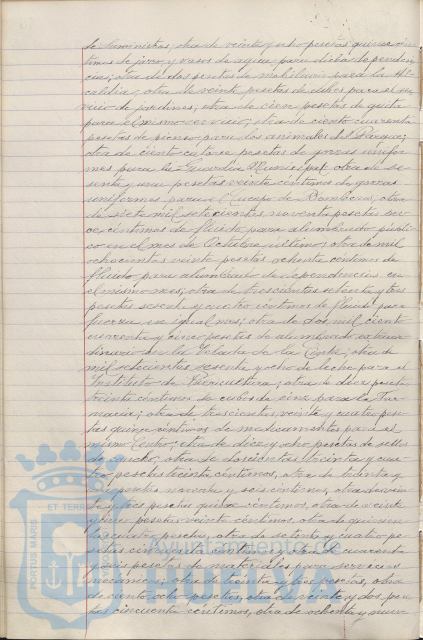 de Suministros, otra de veinte y ocho pesetas quince cén-
timos de jarro y vasos de agua para dicha dependen-
cia; otra de doscientas de mobiliario para la Al-
caldía; otra de veinte pesetas de útiles para el ser-
vicio de jardines; otra de cien pesetas de
para el mismo servicio; otra de ciento cuarenta
pesetas de pienso para los animales del Parque;
otra de ciento catorce pesetas de gorras unifor-
mes para la Guardia Municipal; otra de se-
senta y una pesetas veinte céntimos de gorras
uniformes para el Cuerpo de Bomberos; otra
de siete mil setecientas noventa pesetas
céntimos de fluido para alumbrado públi-
co en el mes de Octubre último; otra de mil
ochocientas veinte pesetas ochenta céntimos de
fluido para alumbrado de dependencias en
el mismo mes; otra de trescientas setenta y tres
pesetas sesenta y cuatro céntimos de fluido para
fuerza en igual mes; otra de dos mil ciento
cuarenta y cinco pesetas de alumbrado extraor-
dinario en la Velada de la Cinta; otra de
mil setecientas sesenta y ocho de leche para el
Instituto de Puericultura; otra de diez pesetas
treinta céntimos de cubos de zinc para la Far-
macia; otra de trescientas veinte y cuatro pese-
tas quince céntimos de medicamentos para el
mismo Centro; otra de diez y ocho pesetas de sellos
de caucho; otra de doscientas treinta y cua-
tro pesetas treinta céntimos, otra de treinta y
pesetas noventa y seis céntimos, otra de vein-
te y tres pesetas quince céntimos, otra de veinte
y una pesetas veinte céntimos, otra de quinien-
tas pesetas, otra de treinta y cuatro pe-
setas cincuenta céntimos y otra de cuarenta
y seis pesetas de materiales para servicios
mecánicos; otra de treinta y tres pesetas, otra
de ciento ocho pesetas, otra de veinte y dos pese-
tas cincuenta céntimos, otra de ochenta y nueve
PORTUS MARIS ET TERRAE
Ayuntamiento de